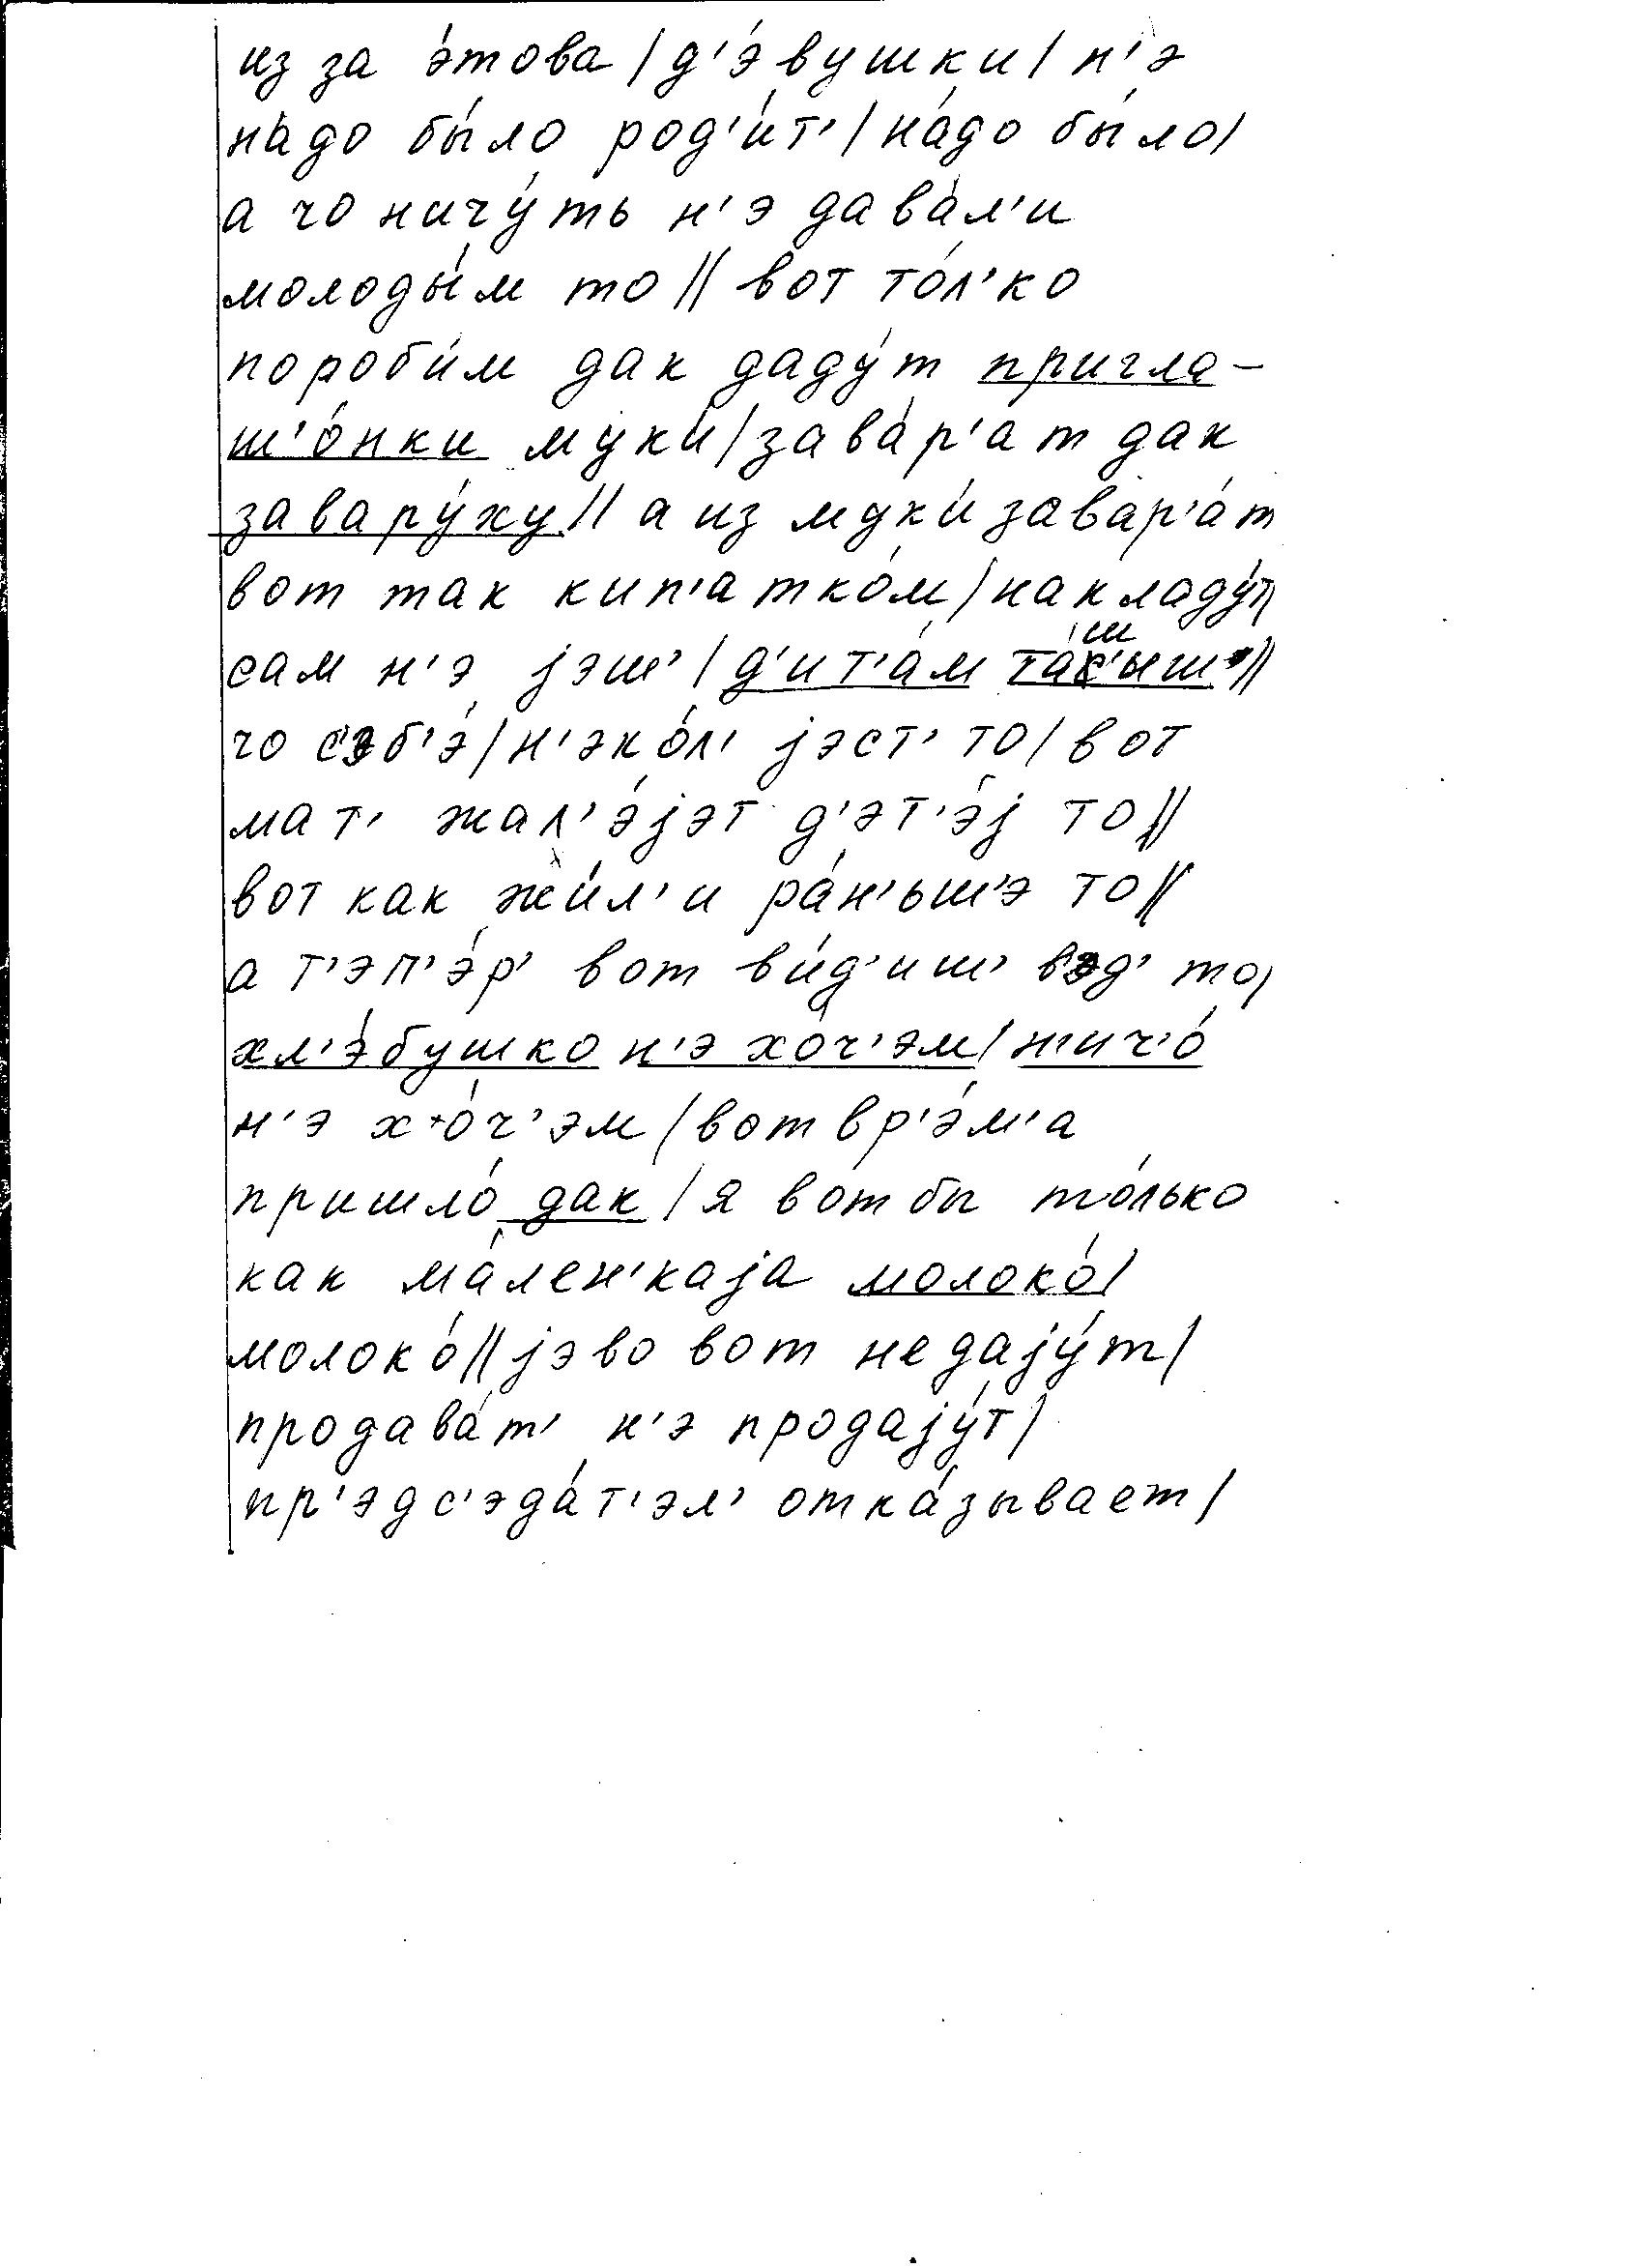 из за э́това / д'э́вушки / н'э
на́до бы́ло род'и́т' / на́до бы́ло /
а чо ничу́ть н'э дава́л'и
молоды́м то // вот то́л'ко
пороби́м дак даду́т пригла-
ш'о́нки муки́ / зава́р'ат дак
завару́ху // а из муки́ завар'а́т
вот так кип'атко́м / накладу́т
сам н'э jэш' / д'ит'а́м
чо сэб'э́ / н'эко́л' jэст' то / вот
мат' жал'э́jэт д'эт'э́j то //
вот как жи́л'и ра́н'ьш'э то //
а т'эп'э́р' вот ви́д'иш' вэд' то /
хл'э́бушко н'э хо́ч'эм / н'ич'о́
н'э хо́ч'эм / вот вр'э́м'а
пришло́ дак / я вот бы то́лько
как ма́лен'каjа молоко́ /
молоко́ // jэво вот не даjу́т /
продава́т' н'э продаjу́т /
пр'эдс'эда́т'эл' отка́зывает /